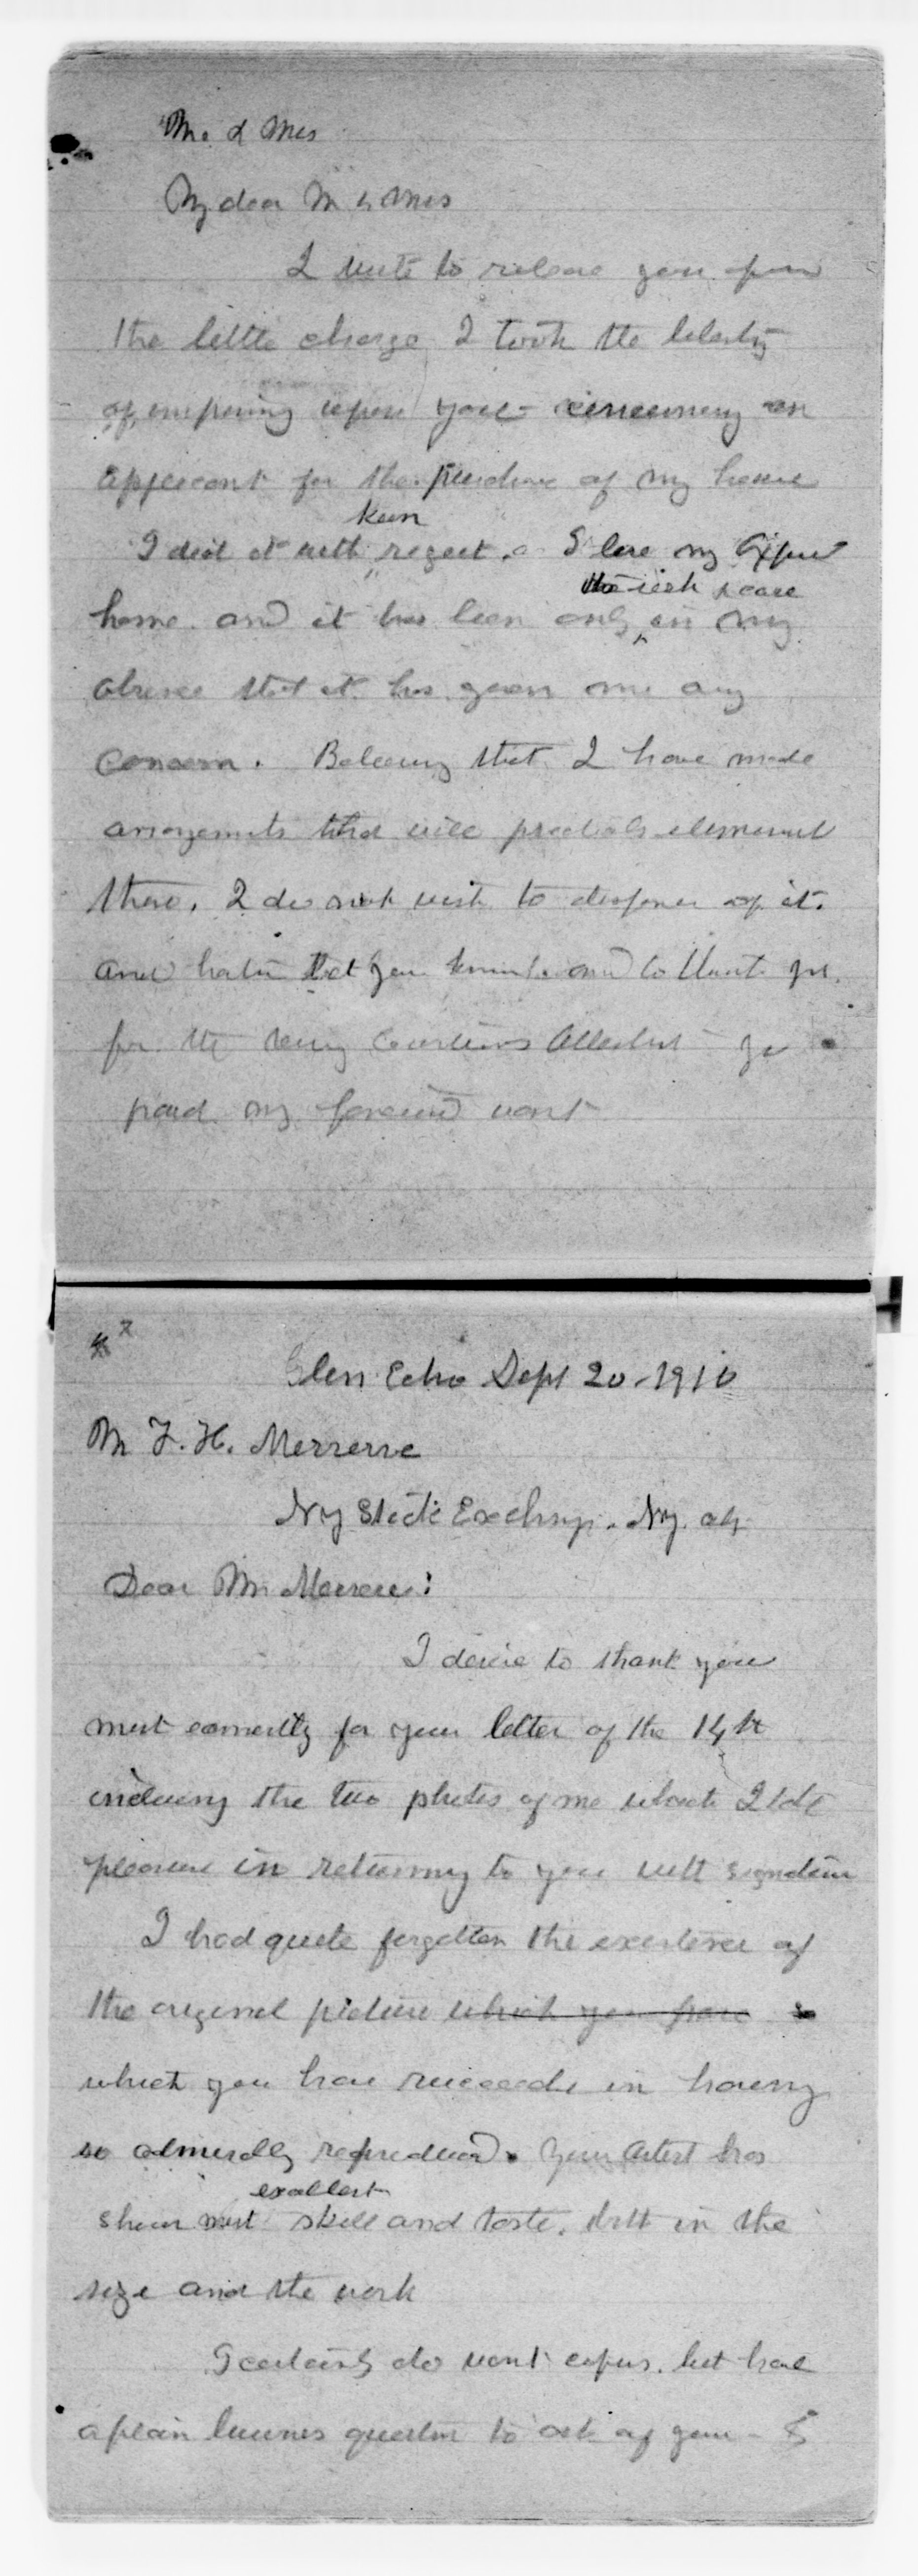 Mr. & Mrs
My dear Mr & Mrs
I write to release you from
the little charge I took the liberty
of imposing upon you - concerning an
applicant for the purchase of my house
keen
I did it with regret. I love my Oxford
the risk & care
home. and it has been only in my
absence that it has given me any
concern. Believing that I have made
arrangements that will
there. I do not wish to dispose of it.
and hasten to let you know it. and to thank you
for the very courteous attention you
paid my
Glen Echo Sept 20 - 1910
Mr F. H.
N.Y. State Exchange. N.Y. city
Dear Mr
I desire to thank you
most earnestly for your letter of the 14th
inclosing the two photos of me which I take
pleasure in returning to you with signature
I had quite forgotten the existence of
the original picture which you have so
which you have succeeded in having
so admirably reproduced. Your Artist has
excellent
shown most skill and taste. both in the
size and the work
I certainly do want copies. but have
a plain business question to ask of you - &